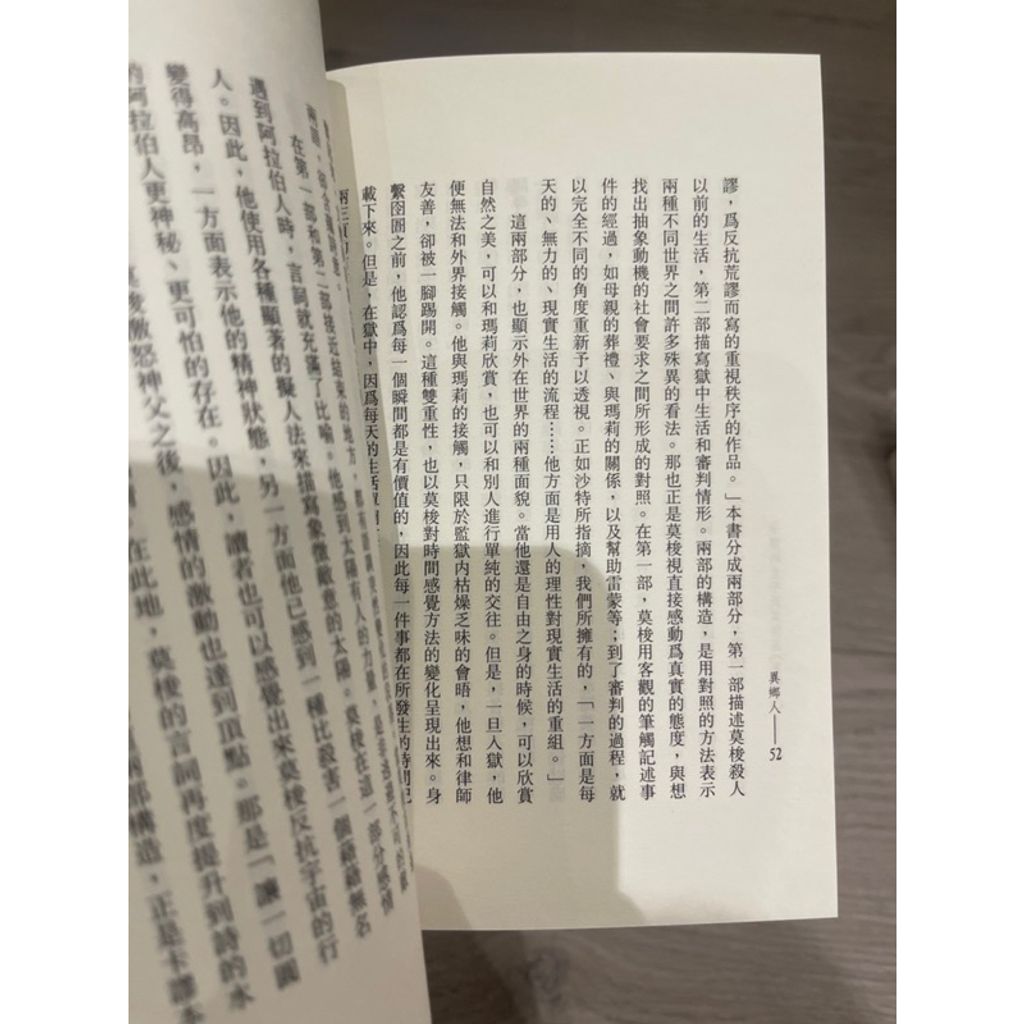 異鄉人——52
謬，爲反抗荒謬而寫的重視秩序的作品。」本書分成兩部分，第一部描述莫梭殺人
以前的生活，第二部描寫獄中生活和審判情形。兩部的構造，是用對照的方法表示
兩種不同世界之間許多殊異的看法。那也正是莫梭視直接感動爲真實的態度，與想
找出抽象動機的社會要求之間所形成的對照。在第一部，莫梭用客觀的筆觸記述事
件的經過，如母親的葬禮、與瑪莉的關係，以及幫助雷蒙等；到了審判的過程，就
以完全不同的角度重新予以透視。正如沙特所指摘，我們所擁有的，「一方面是每
天的、無力的、現實生活的流程……他方面是用人的理性對現實生活的重組。」
這兩部分，也顯示外在世界的兩種面貌。當他還是自由之身的時候，可以欣賞
自然之美，可以和瑪莉欣賞，也可以和別人進行單純的交往。但是，一旦入獄，他
便無法和外界接觸。他與瑪莉的接觸，只限於監獄内枯燥乏味的會晤，他想和律師
友善，卻被一腳踢開。這種雙重性，也以莫梭對時間感覺方法的變化呈現出來。身
繫囹圄之前，他認爲每一個瞬間都是有價值的，因此每一件事都在所發生的時間記
載下來。但是，在獄中，因爲每天的生活
兩三頁
在第一部和第二部接近結束的地方，都有
遇到阿拉伯人時，言詞就充滿了比喻。他感到太陽有人的力量，
人。因此，他使用各種顯著的擬人法來描寫象徵敵意的太陽。莫梭在這一部分感情
變得高昂，一方面表示他的精神狀態，另一方面他已感到一種比殺害一個藉藉無名
的阿拉伯人更神秘、更可怕的存在。因此，讀者也可以感覺出來莫梭反抗宇宙的行
激怒神父之後，感情的激動也達到頂點。那是「讓一切圓
在此地，莫梭的言詞再度提升到詩的水
部構造，正是卡謬